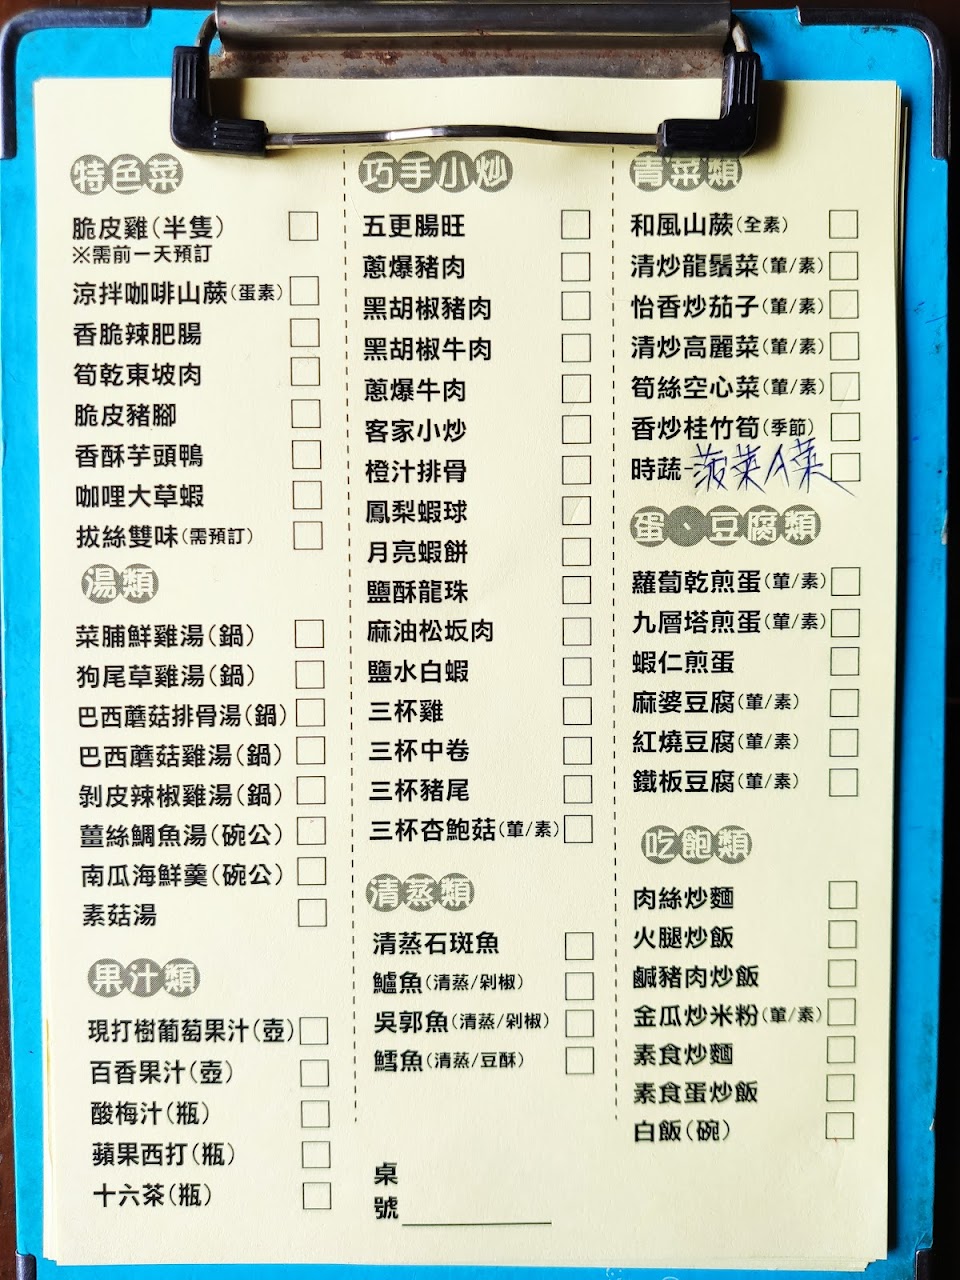 特色菜
脆皮雞(半隻)
※需前一天預訂
涼拌咖啡山蕨(蛋素)
香脆辣肥腸
筍乾東坡肉
脆皮豬腳
香酥芋頭鴨
咖哩大草蝦
拔絲雙味(需預訂)
湯類
菜脯鮮雞湯(鍋)
狗尾草雞湯(鍋)
巴西蘑菇排骨湯(鍋)
巴西蘑菇雞湯(鍋)
剝皮辣椒雞湯(鍋)
薑絲鯛魚湯(碗公)
南瓜海鮮羹(碗公)
素菇湯
果汁類
現打樹葡萄果汁(壺)
百香果汁(壺)
酸梅汁(瓶)
蘋果西打(瓶)
十六茶(瓶)
巧手小炒
五更腸旺
蔥爆豬肉
黑胡椒豬肉
黑胡椒牛肉
蔥爆牛肉
客家小炒
橙汁排骨
鳳梨蝦球
月亮蝦餅
鹽酥龍珠
麻油松坂肉
鹽水白蝦
三杯雞
三杯中卷
三杯豬尾
三杯杏鮑菇(葷/素)
清蒸類
清蒸石斑魚
鱸魚(清蒸/剁椒)
吳郭魚(清蒸/剁椒)
鱈魚(清蒸/豆酥)
桌
號
青菜類
和風山蕨(全素)
清炒龍鬚菜(葷/素)
怡香炒茄子(葷/素)
清炒高麗菜(葷/素)
筍絲空心菜(葷/素)
香炒桂竹筍(季節)
時蔬-菠菜A菜
蛋、豆腐類
蘿蔔乾煎蛋(葷/素)
九層塔煎蛋(葷/素)
蝦仁煎蛋
麻婆豆腐(葷/素)
紅燒豆腐(葷/素)
鐵板豆腐(葷/素)
吃飽類
肉絲炒麵
火腿炒飯
鹹豬肉炒飯
金瓜炒米粉(葷/素)
素食炒麵
素食蛋炒飯
白飯(碗)